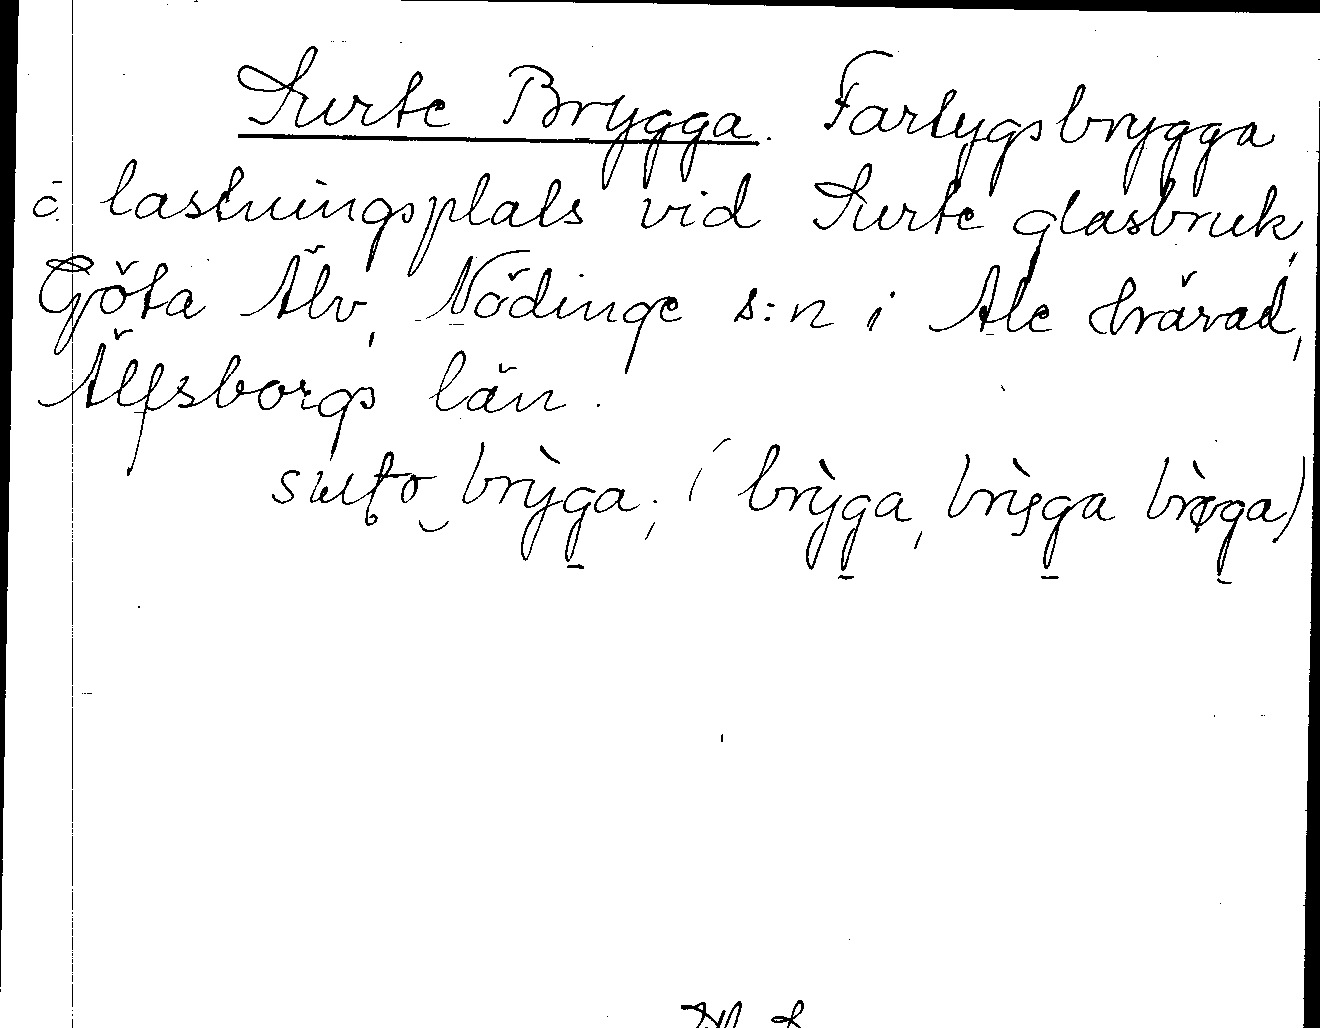 Surte Brygga. Fartygsbrygga
o. lastningsplats vid Surte glasbruk,
Göta Älv, Nödinge s:n i Ale härad,
Älfsborgs län.
bryga; (bryga,